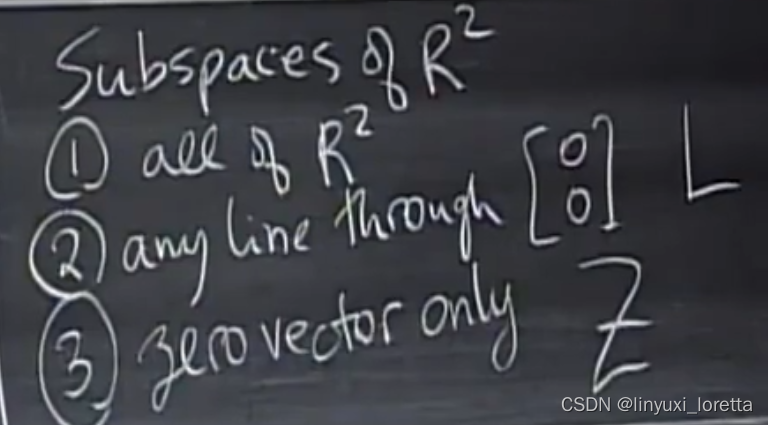 Subspaces of R²
① all of R²
② any line through [0 0] L
③ zero vector only Z
CSDN @linyuxi_loretta